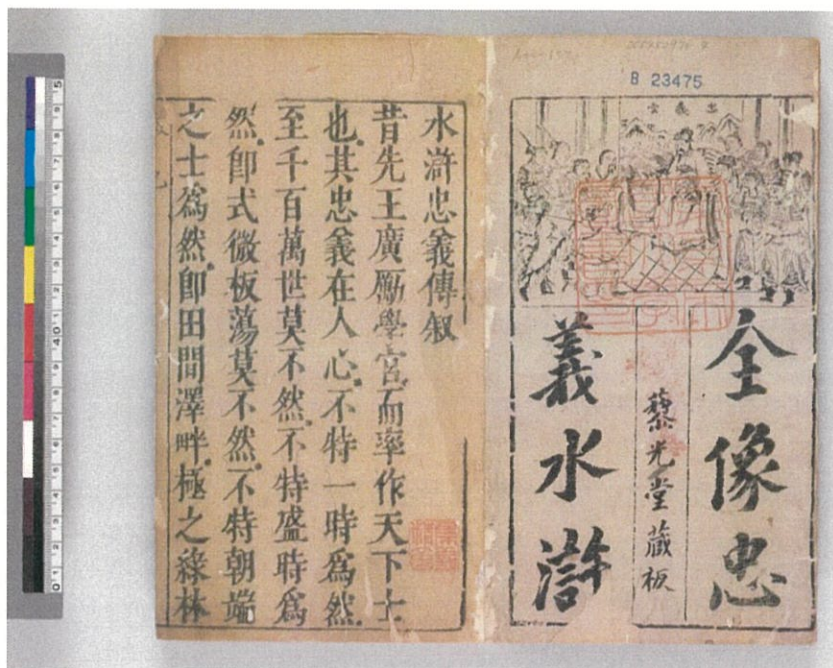 B 23475
忠義堂
全像忠
藜光堂藏板
義水滸
水滸忠義傳叙
昔先王廣勵學宮而率作天下士
也其忠義在人心不特一時爲然
至千百萬世莫不然不特盛時爲
然卽式微板蕩莫不然不特朝端
之士爲然卽田間澤畔極之綠林